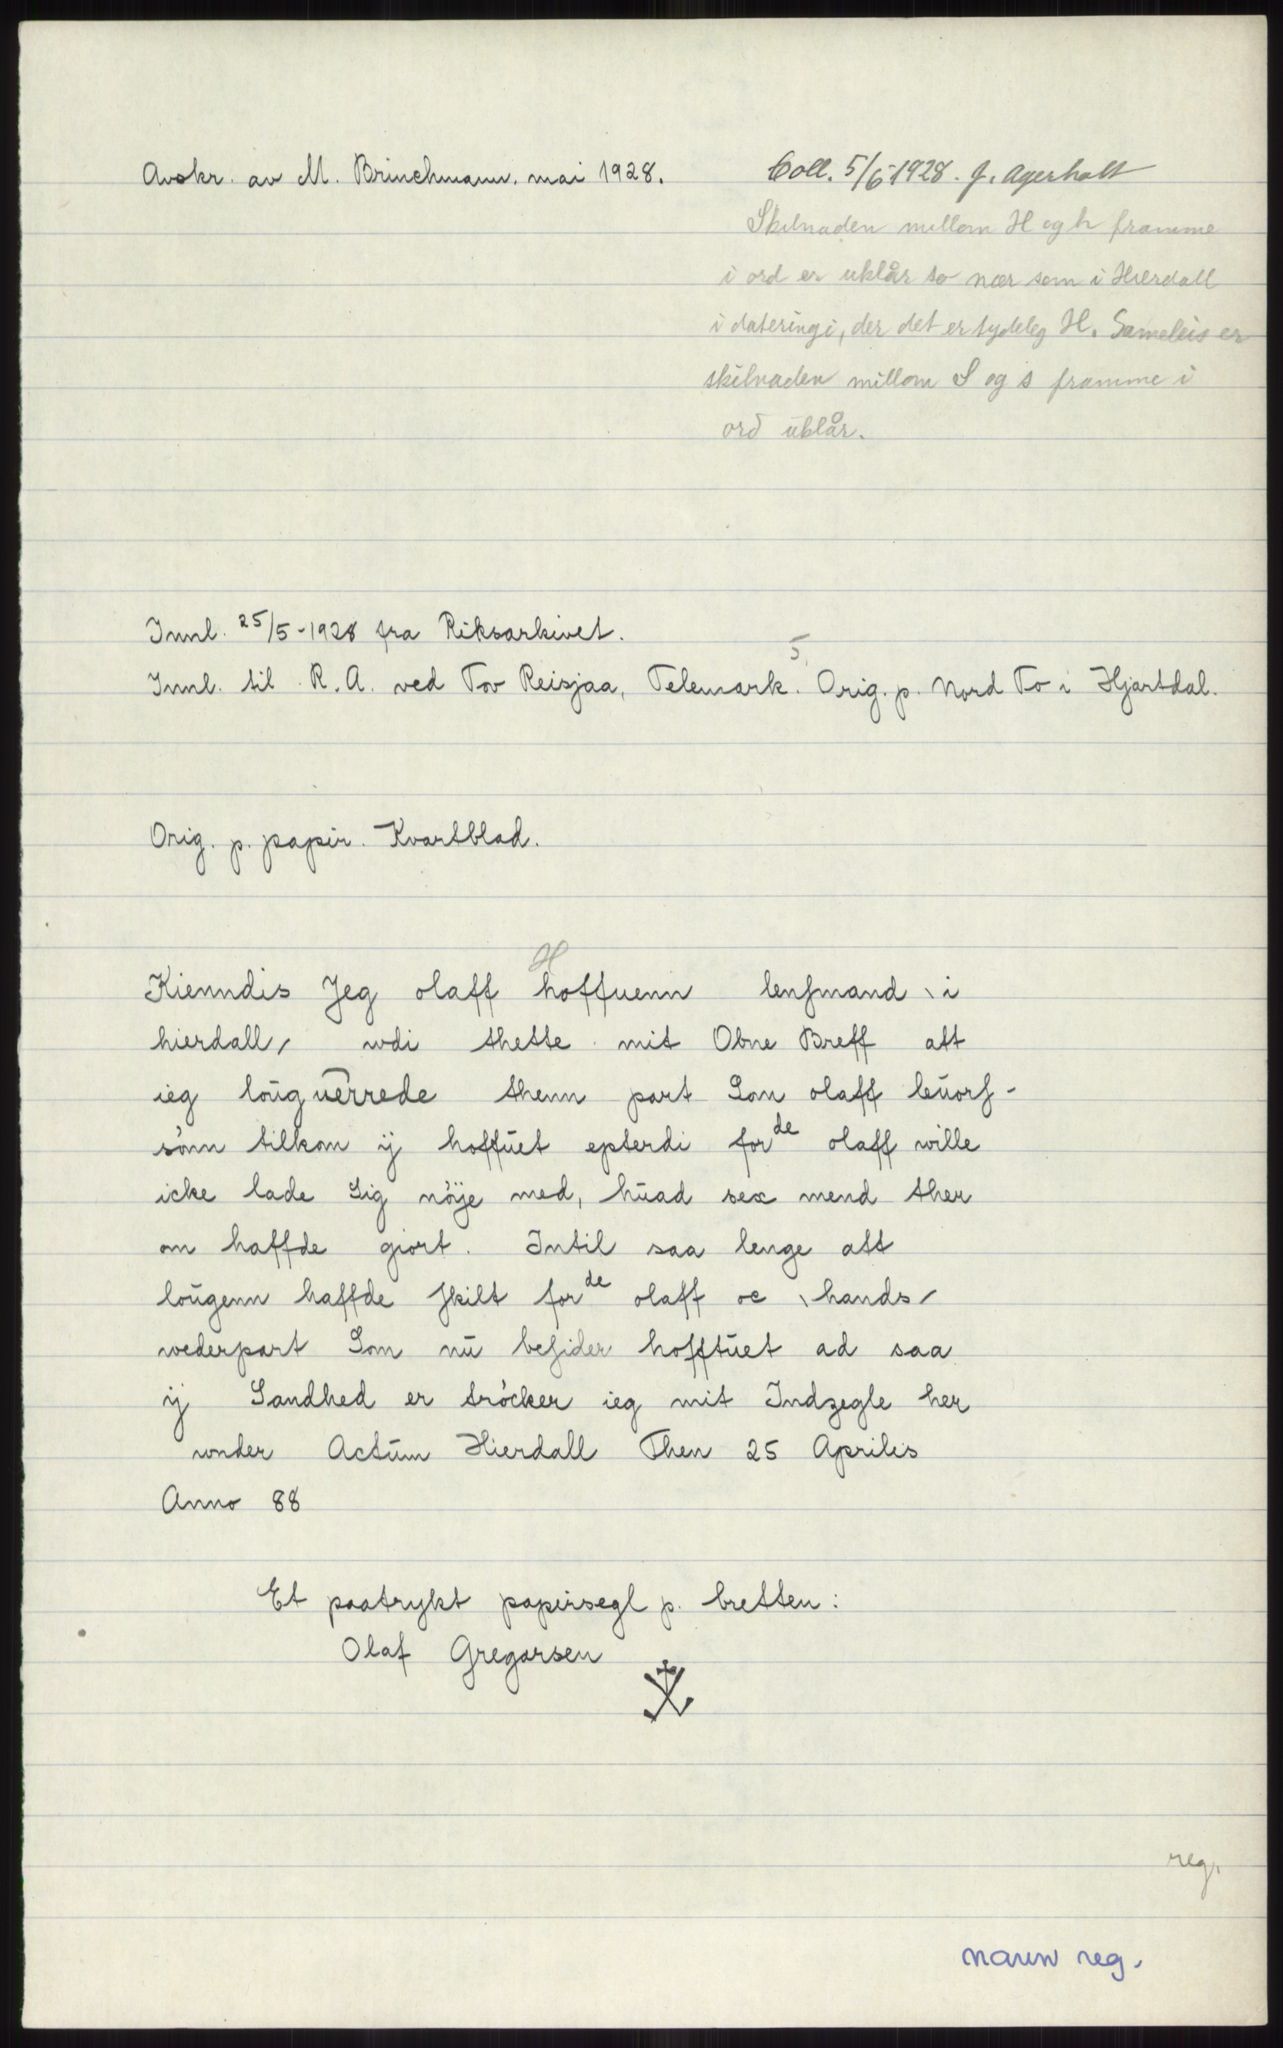 Avskr. av M. Brinchmann. mai 1928.
Coll. 5/6-1928. J. Agerholt
Skilnaden millom H og h framme
i ord er uklår so nær som i Hierdall
i dateringi, der det er tydeleg H. Sameleis er
skilnaden millom S og s framme i
ord uklår.
Innl. 25/5-1928 fra Riksarkivet.
5.
Innl. til R. A. ved Tov Reisjaa, Telemark. Orig. p. Nord To i Hjartdal.
Orig. p. papir. Kvartblad.
H
Kienndis Jeg olaff hoffuenn lenſmand \ i
hierdall / wdi thette mit Obne Breff att
ieg loŭguerrede thenn part Som olaff leŭorſ-
sönn tilkom ÿ hoffŭet epterdi forde olaff wille
icke lade Sig nöÿe med, hŭad sex mend ther
om haffde giort. Intil saa lenge att
loŭgenn haffde ſkilt forde olaff oc \ hands /
wederpart Som nŭ beſider hofftŭet ad saa
ÿ Sandhed er tröcker ieg mit Indzegle her
wnder Actŭm Hierdall Then 25 Aprilis
Anno 88
Et paatrykt papirsegl p. bretten:
Olaf Gregarsen
reg.
navn reg.